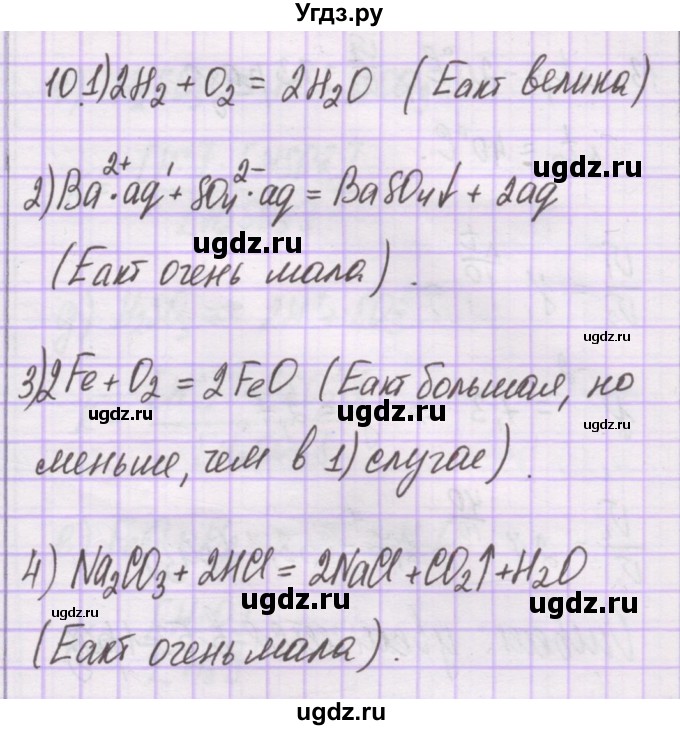 Угдз.ру
10.1) 2H₂ + O₂ = 2H₂O (Еакт велика)
2) Ba²⁺·aq + SO₄²⁻·aq = BaSO₄↓ + 2aq
ugdz.ru
ugdz.ru
(Еакт очень мала).
ugdz.ru
3) 2Fe + O₂ = 2FeO (Еакт большая, но
ugdz.ru
ugdz.ru
ugdz.ru
меньше, чем в 1) случае).
4) Na₂CO₃ + 2HCl = 2NaCl + CO₂↑ + H₂O
ugdz.ru
ugdz.ru
ugdz.ru
(Еакт очень мала).
ugdz.ru